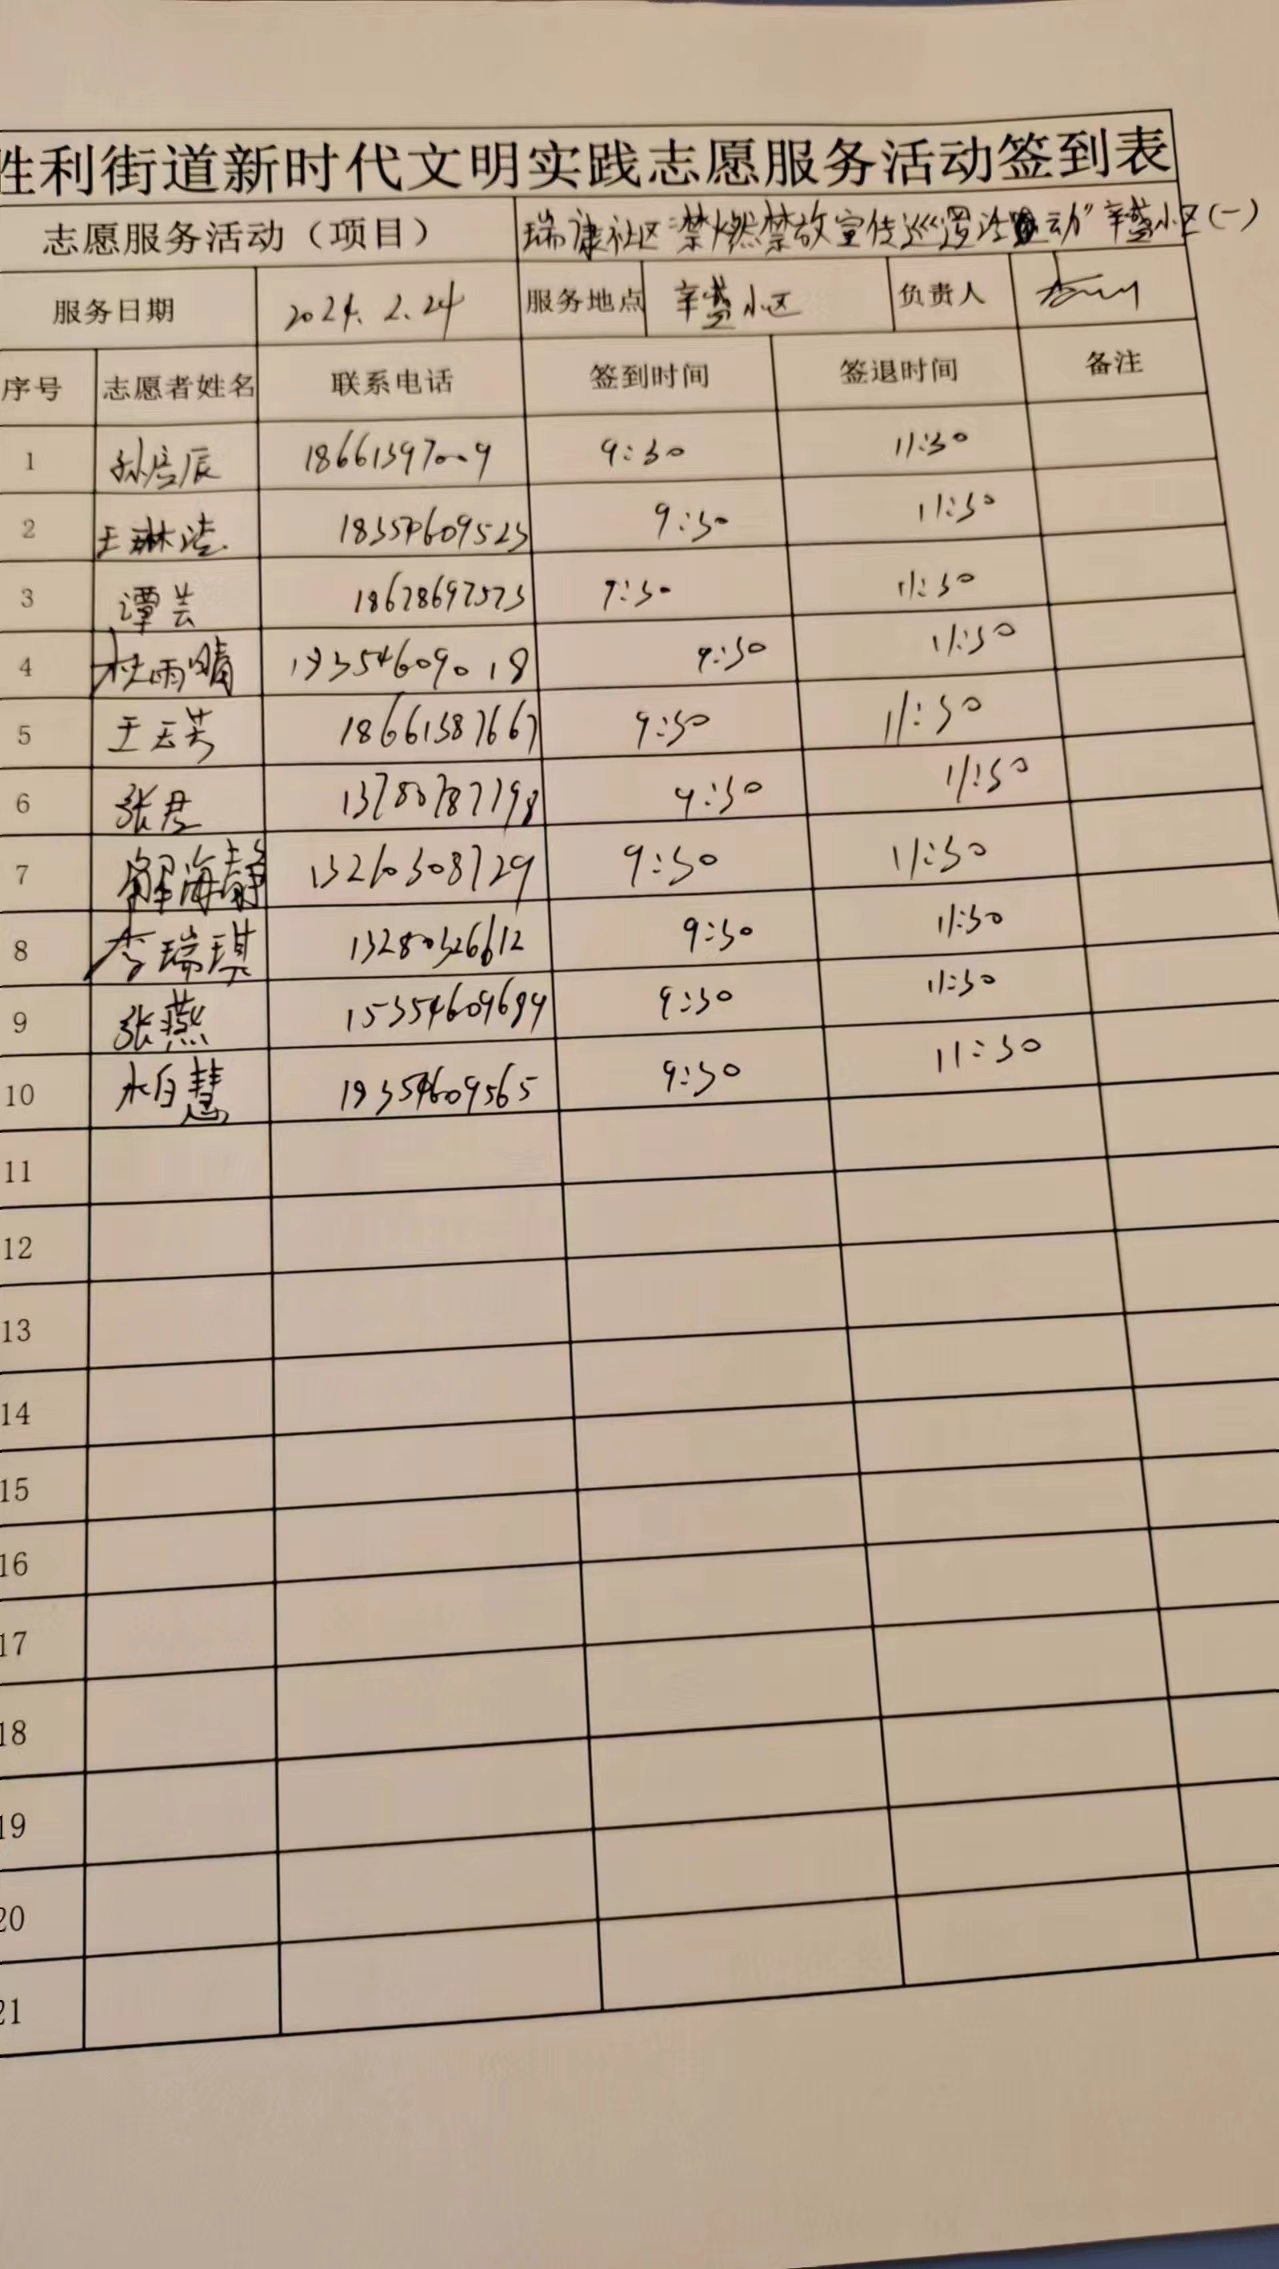 胜利街道新时代文明实践志愿服务活动签到表
志愿服务活动（项目） 瑞康社区“禁燃禁放宣传巡逻活动”辛盛小区(一)
服务日期 2024.2.24 服务地点 辛盛小区 负责人
序号 志愿者姓名 联系电话 签到时间 签退时间 备注
1 9:30 11:30
2 王琳洁 18354609523 9:30 11:30
3 谭芸 18678697573 9:30 11:30
4 杜雨晴 19354609018 9:30 11:30
5 王云芳 18661387667 9:30 11:30
6 张君 9:30 11:30
7 解海静 13210308729 9:30 11:30
8 李瑞琪 13280326612 9:30 11:30
9 张燕 15354609694 9:30 11:30
10 19354609565 9:30 11:30
11
12
13
14
15
16
17
18
19
20
21